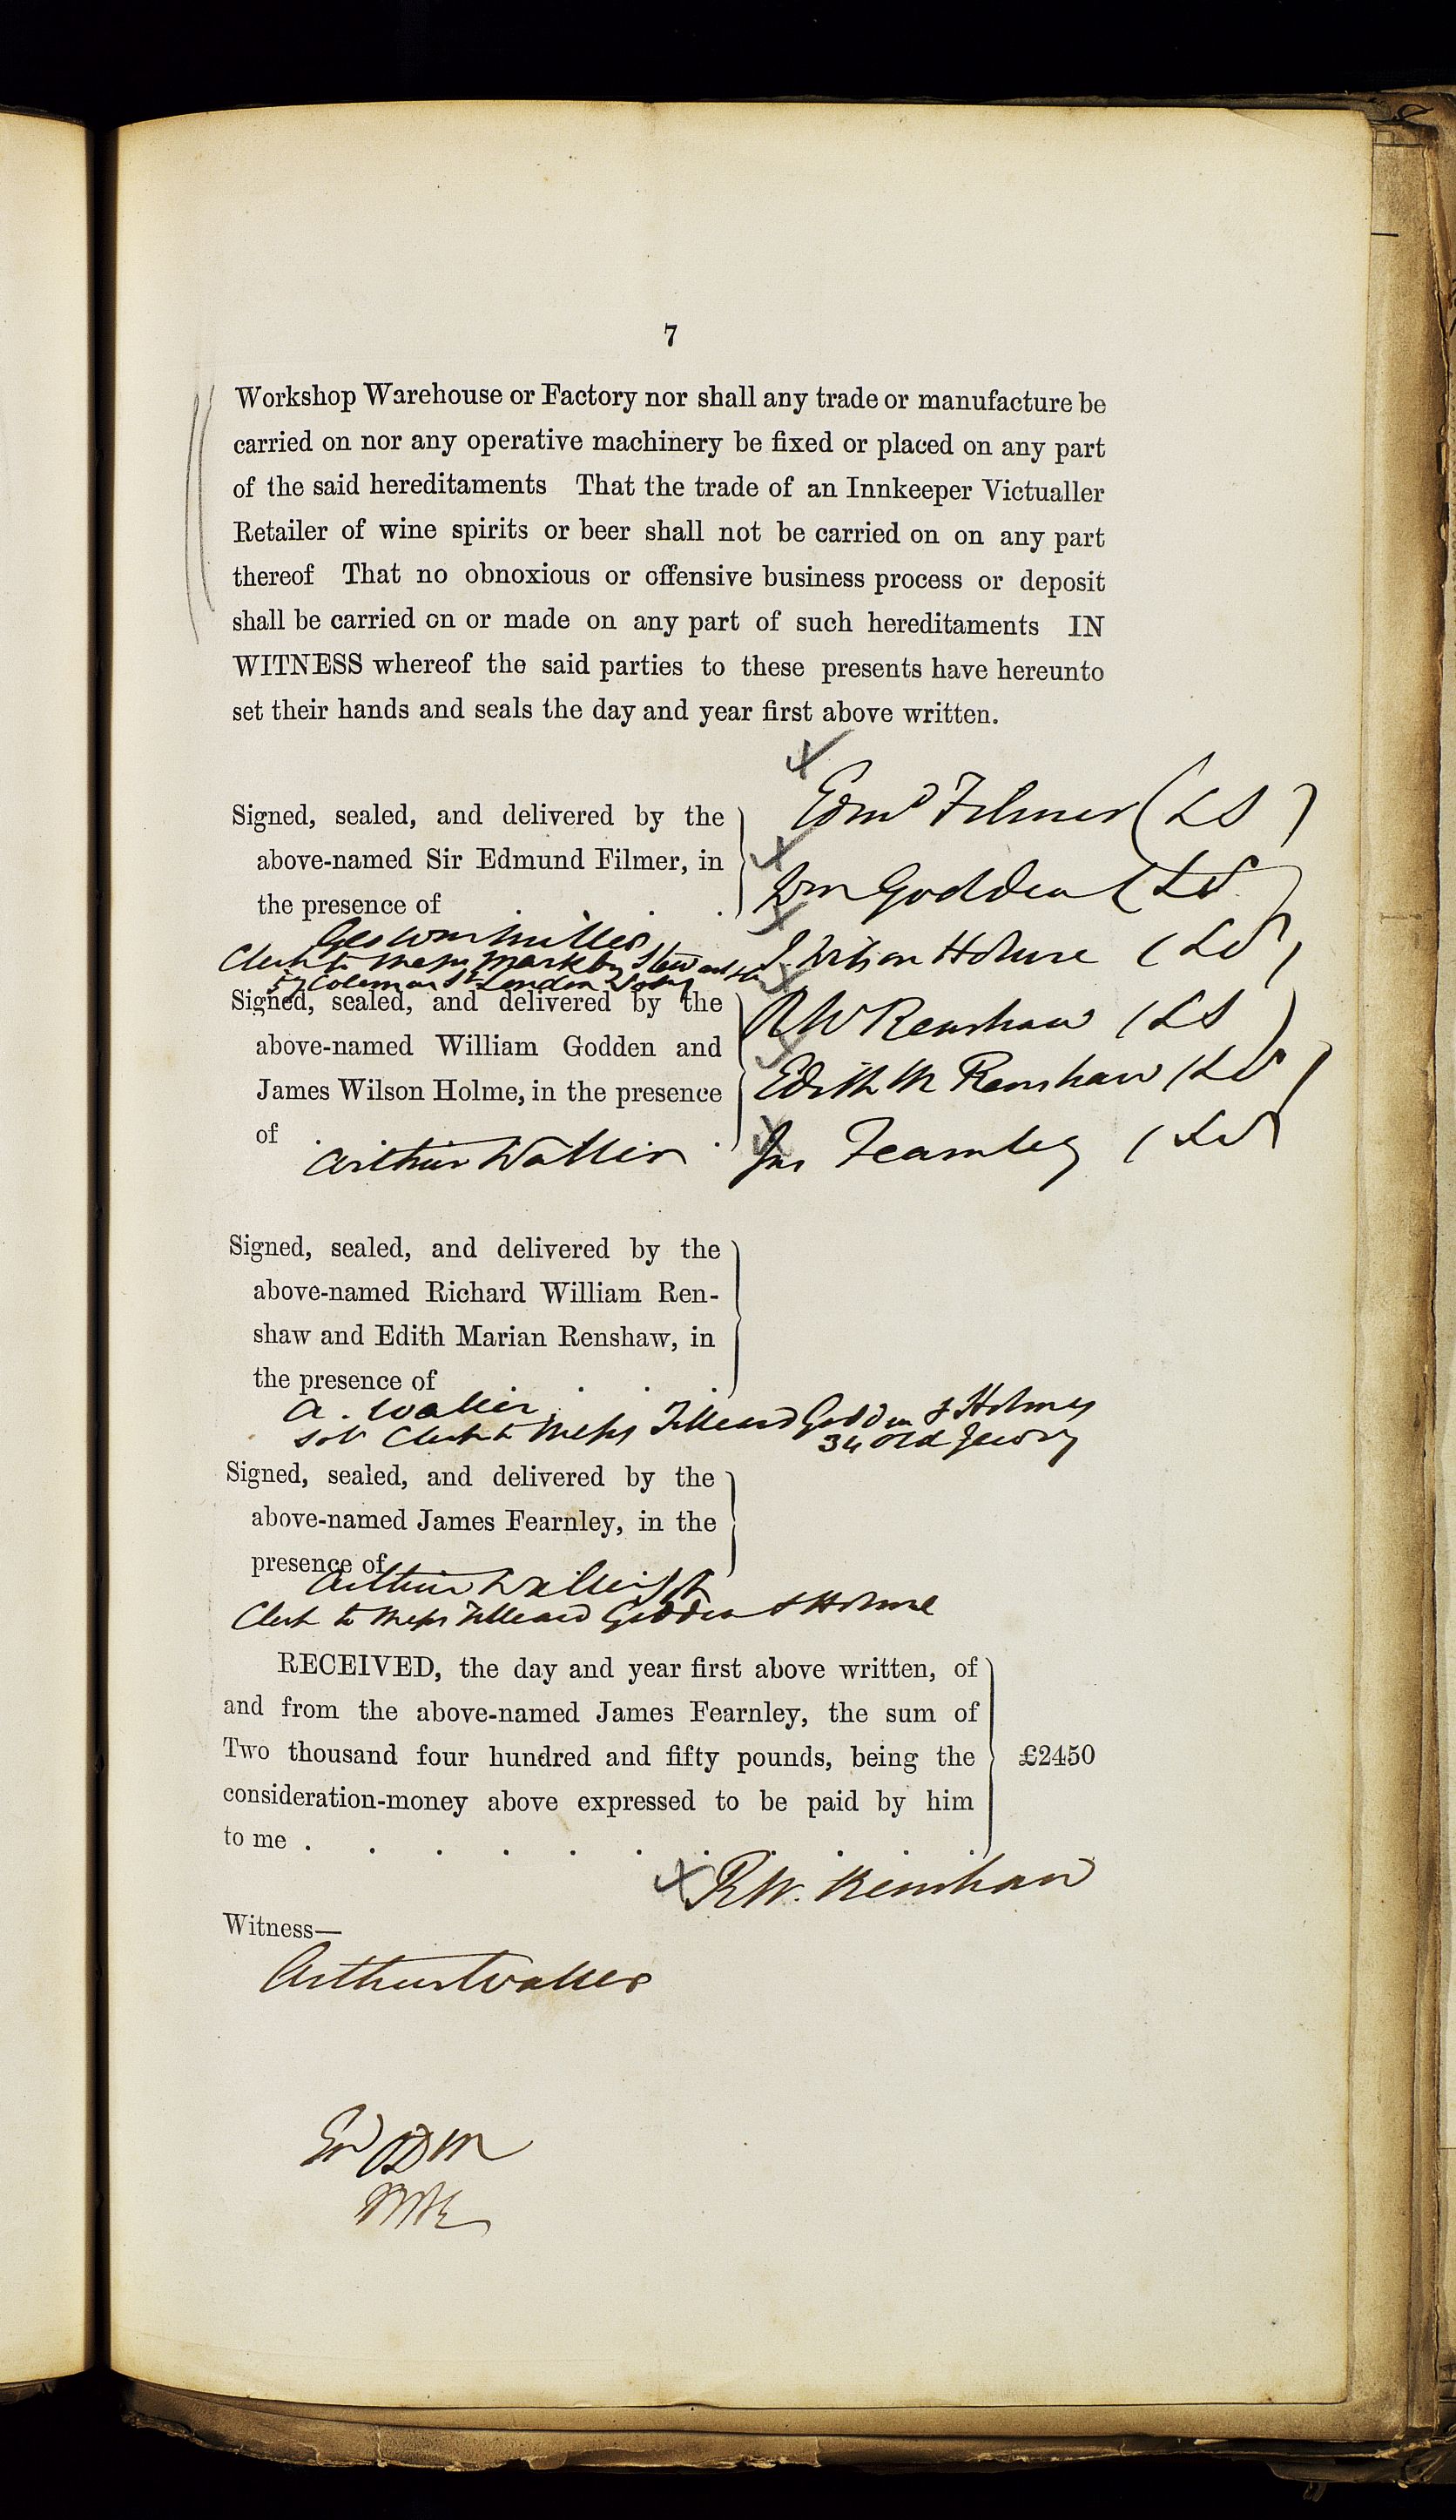 7
Workshop Warehouse or Factory nor shall any trade or manufacture be
carried on nor any operative machinery be fixed or placed on any part
of the said hereditaments That the trade of an Innkeeper Victualler
Retailer of wine spirits or beer shall not be carried on on any part
thereof That no obnoxious or offensive business process or deposit
shall be carried on or made on any part of such hereditaments IN
WITNESS whereof the said parties to these presents have hereunto
set their hands and seals the day and year first above written.
Signed, sealed, and delivered by the
above-named Sir Edmund Filmer, in
the presence of
Edmd Filmer (LS)
Wm Godden (LS)
J Wilson Holme (LS)
RW Renshaw (LS)
Edith M Renshaw (LS)
Jas Fearnley (LS)
Geo Wm Miller
Clerk to Messrs Markby Stewart &
57 Coleman St London
Signed, sealed, and delivered by the
above-named William Godden and
James Wilson Holme, in the presence
of
Arthur Walker
Signed, sealed, and delivered by the
above-named Richard William Ren-
shaw and Edith Marian Renshaw, in
the presence of
A. Walker
Clerk to Messrs Tilleard Godden & Holme
34 Old Jewry
Signed, sealed, and delivered by the
above-named James Fearnley, in the
presence of
Arthur Walker
Clerk to Messrs Tilleard Godden & Holme
RECEIVED, the day and year first above written, of
and from the above-named James Fearnley, the sum of
Two thousand four hundred and fifty pounds, being the
consideration-money above expressed to be paid by him
to me . . . . . . . . . .
£2450
RW. Renshaw
Witness—
Arthur Walker